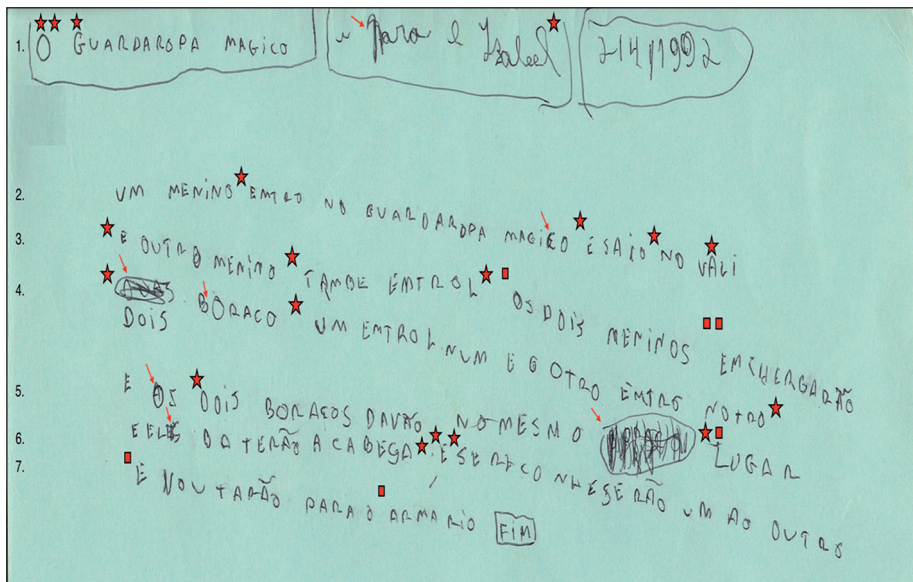 1. O GUARDAROPA MAGICO para Izabel 2/4/1992
2. UM MENINO EMTRO NO GUARDAROPA MAGICO E SAIO NO VALI
3. E OUTRO MENINO TAMBE EMTROL OS DOIS MENINOS EMCHERGARÃO
4. DOIS BORACO UM EMTROL NUM E O OTRO EMTRO NOTRO
5. E OS DOIS BORACOS DAVÃO NO MESMO LUGAR
6. E ELES BATERÃO A CABEÇA E SE RECONHESERÃO UM AO OUTRO
7. E VOUTARÃO PARA O ARMARIO FIM